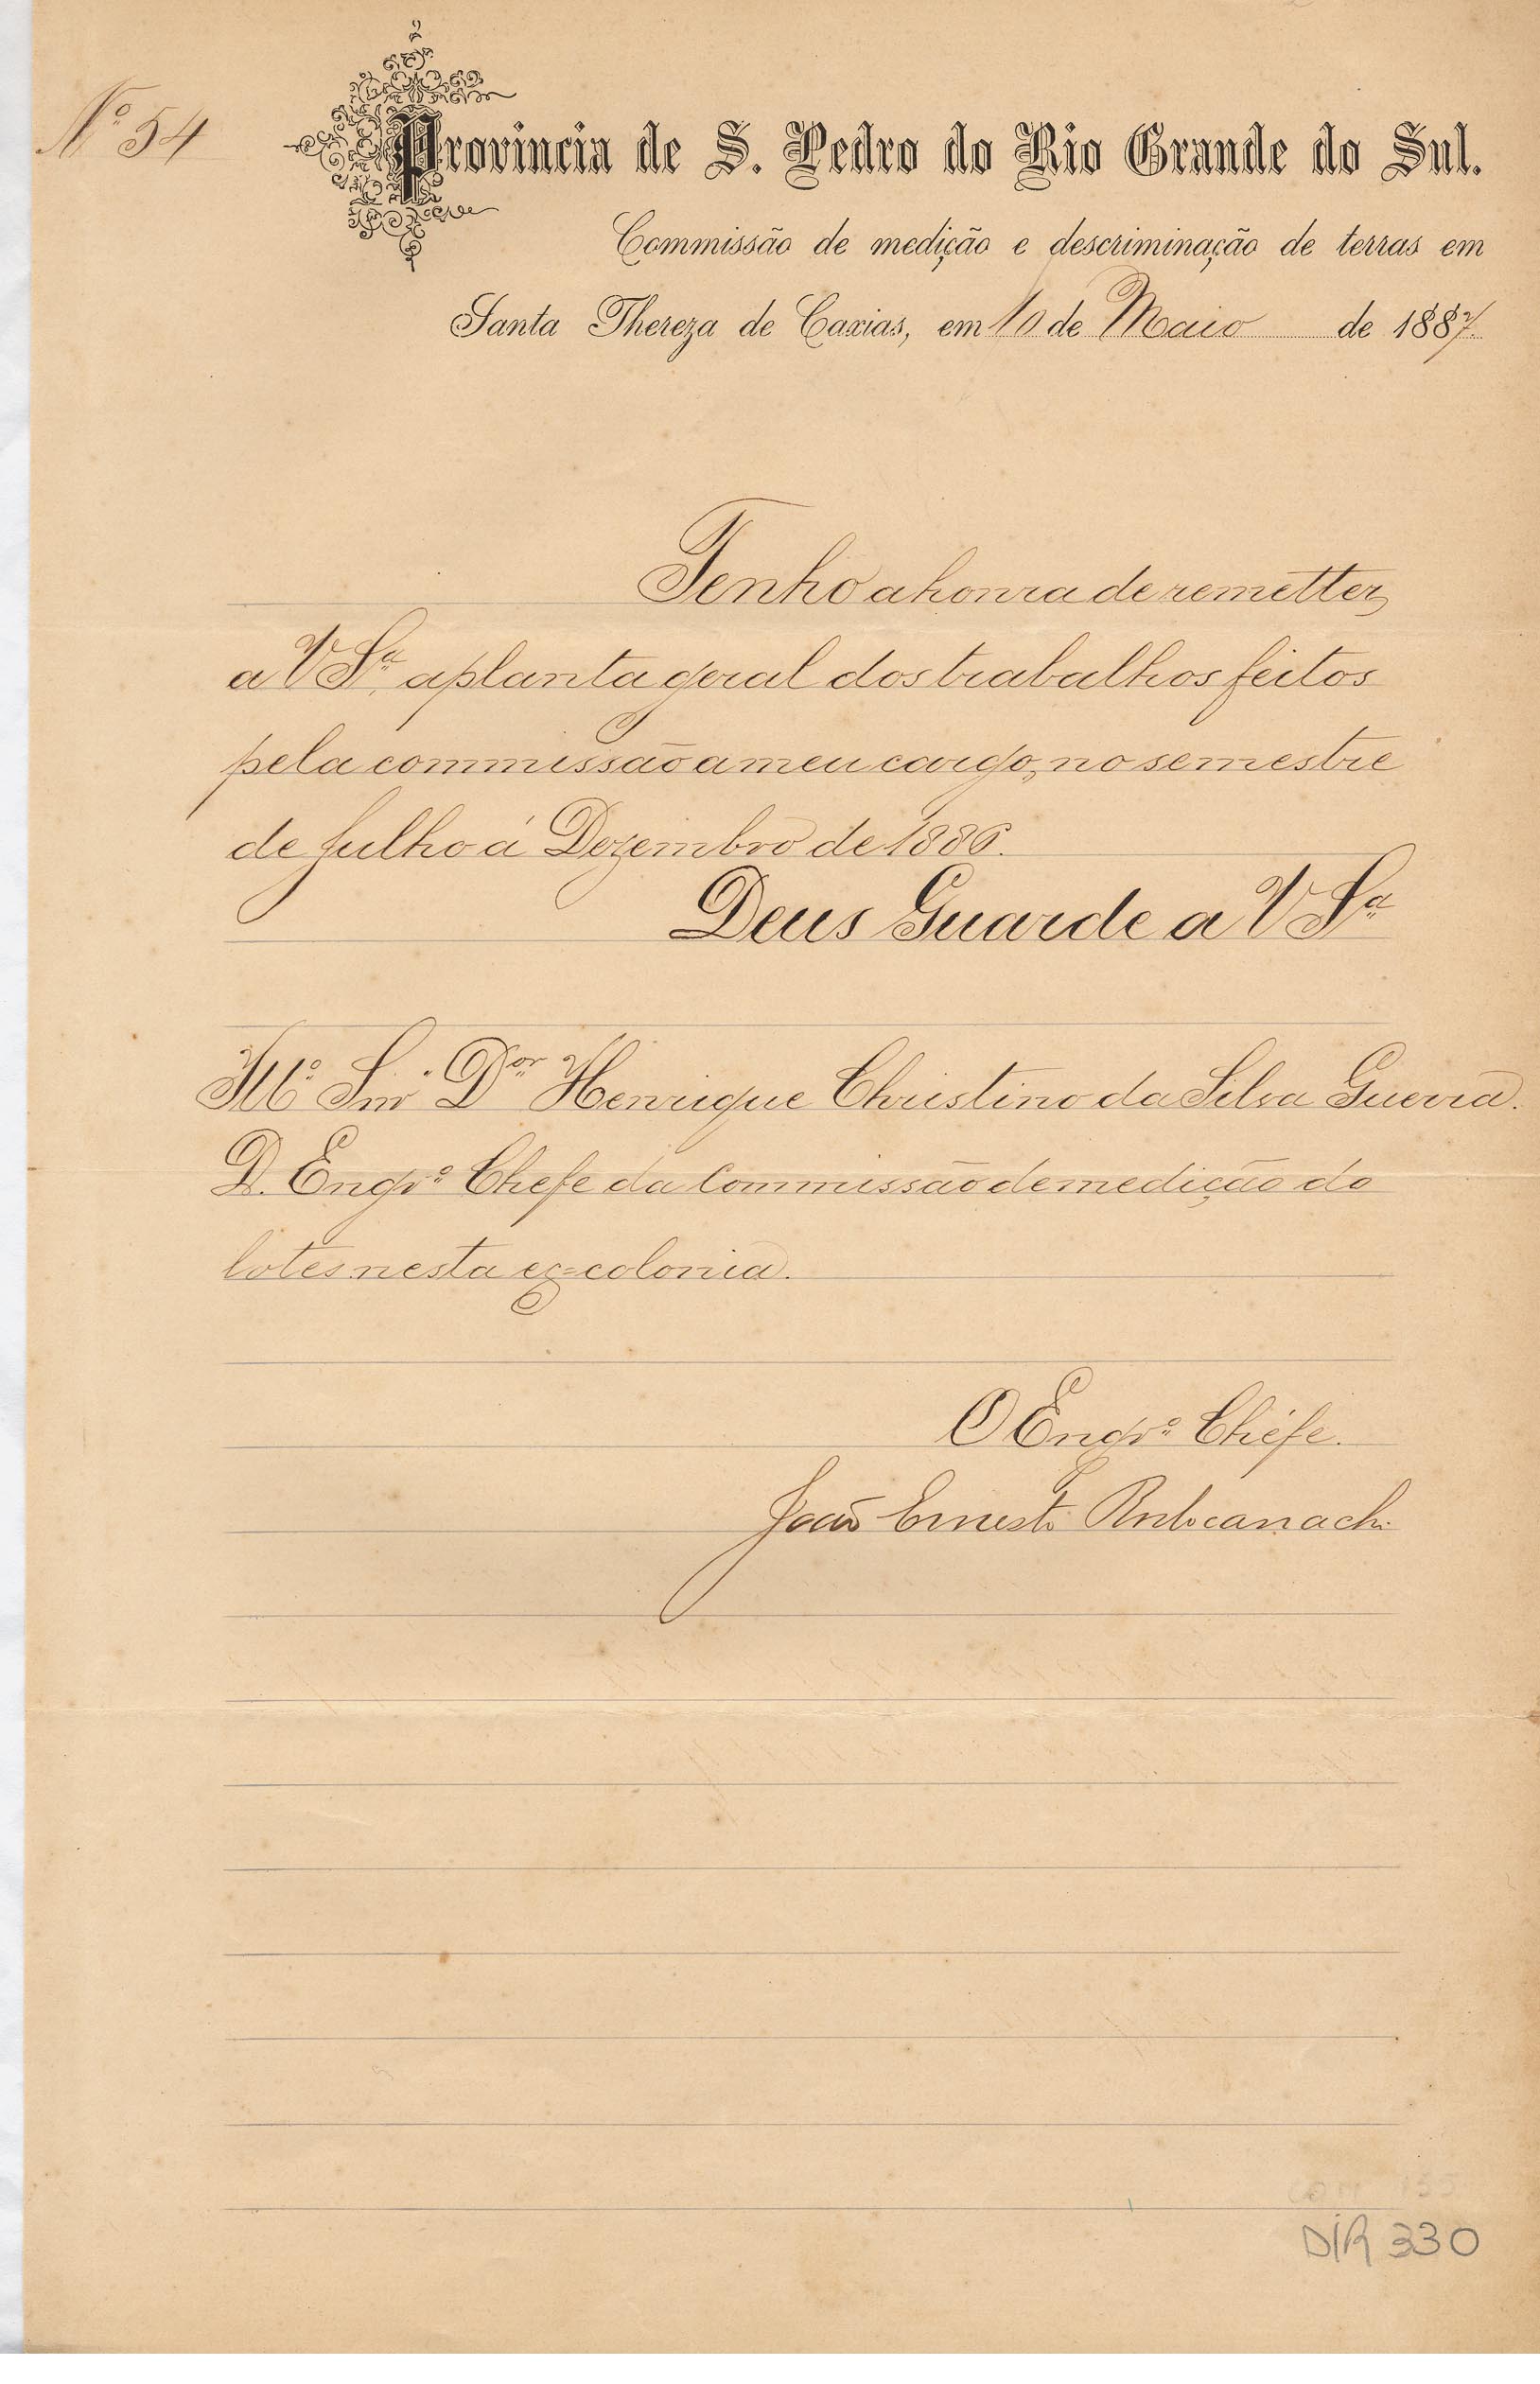 Nº 54
Provincia de S. Pedro do Rio Grande do Sul.
Commissão de medição e descriminação de terras em
Santa Thereza de Caxias, em 10 de Maio de 1887.
Tenho a honra de remetter,
a V Sª. a planta geral dos trabalhos feitos
pela commissão a meu cargo, no semestre
de Julho á Dezembro de 1886.
Deus Guarde a V Sª
Illº Snr Dor Henrique Christino da Silva Guerra.
D. Engrº Chefe da Commissão de medição do
lotes nesta ex=colonia.
O Engrº Chefe.
João Ernesto Rodocanachi
DIR 330